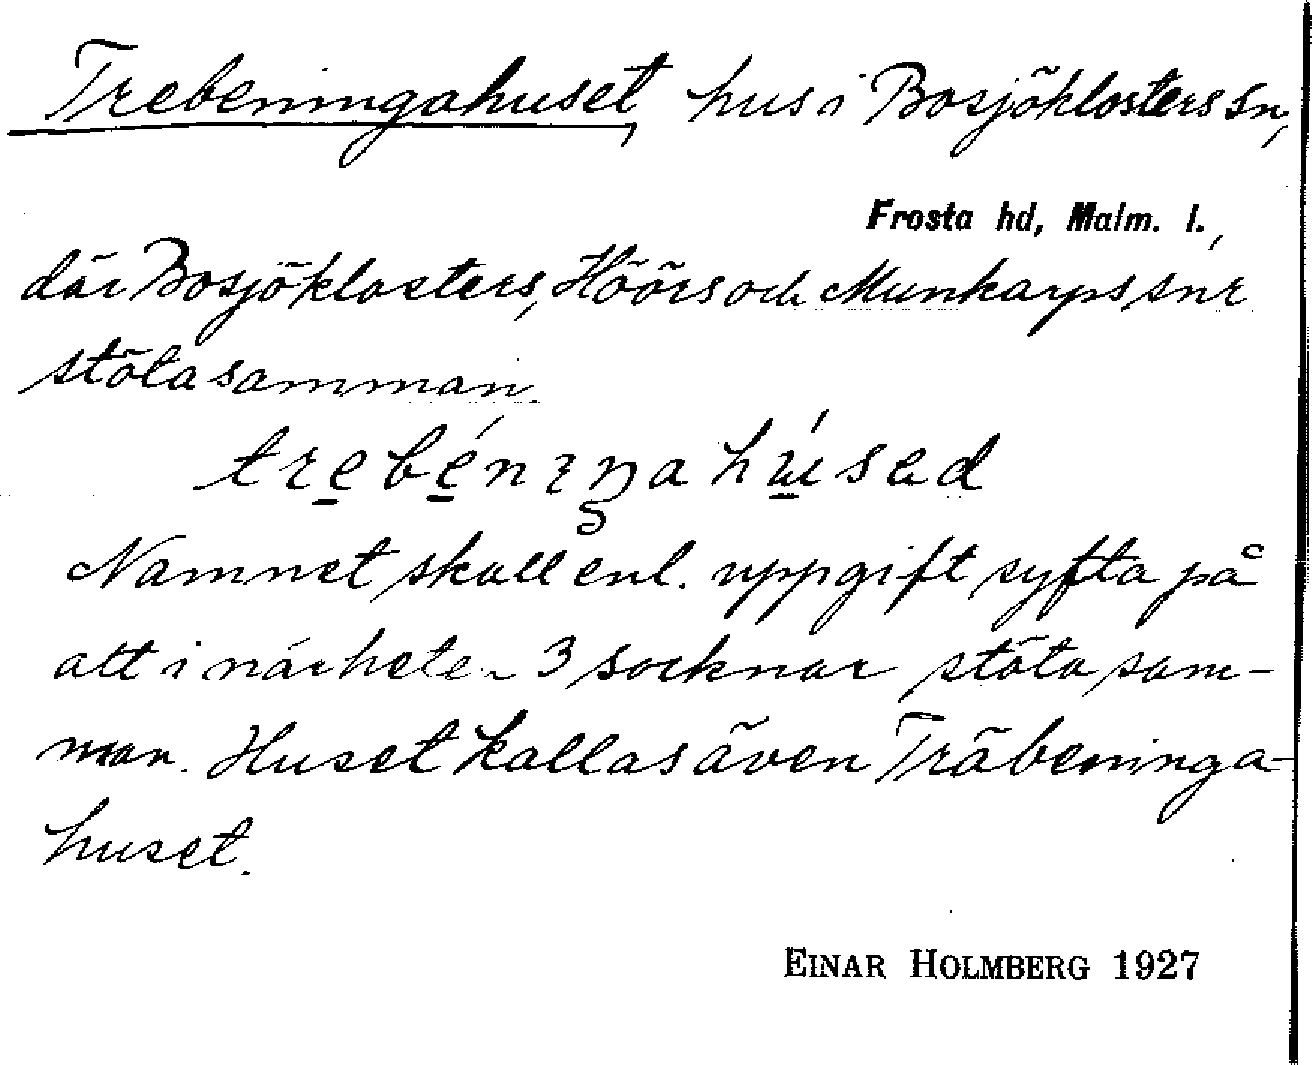 Trebeningahuset, hus i Bosjöklosters sn,
Frosta hd, Malm. l.,
där Bosjöklosters, Höörs och Munkarps snr
stöta samman.
trebénıŋahúsad
Namnet skall enl. uppgift syfta på
att i närheten 3 socknar stöta sam-
man. Huset kallas även Träbeninga-
huset.
EINAR HOLMBERG 1927